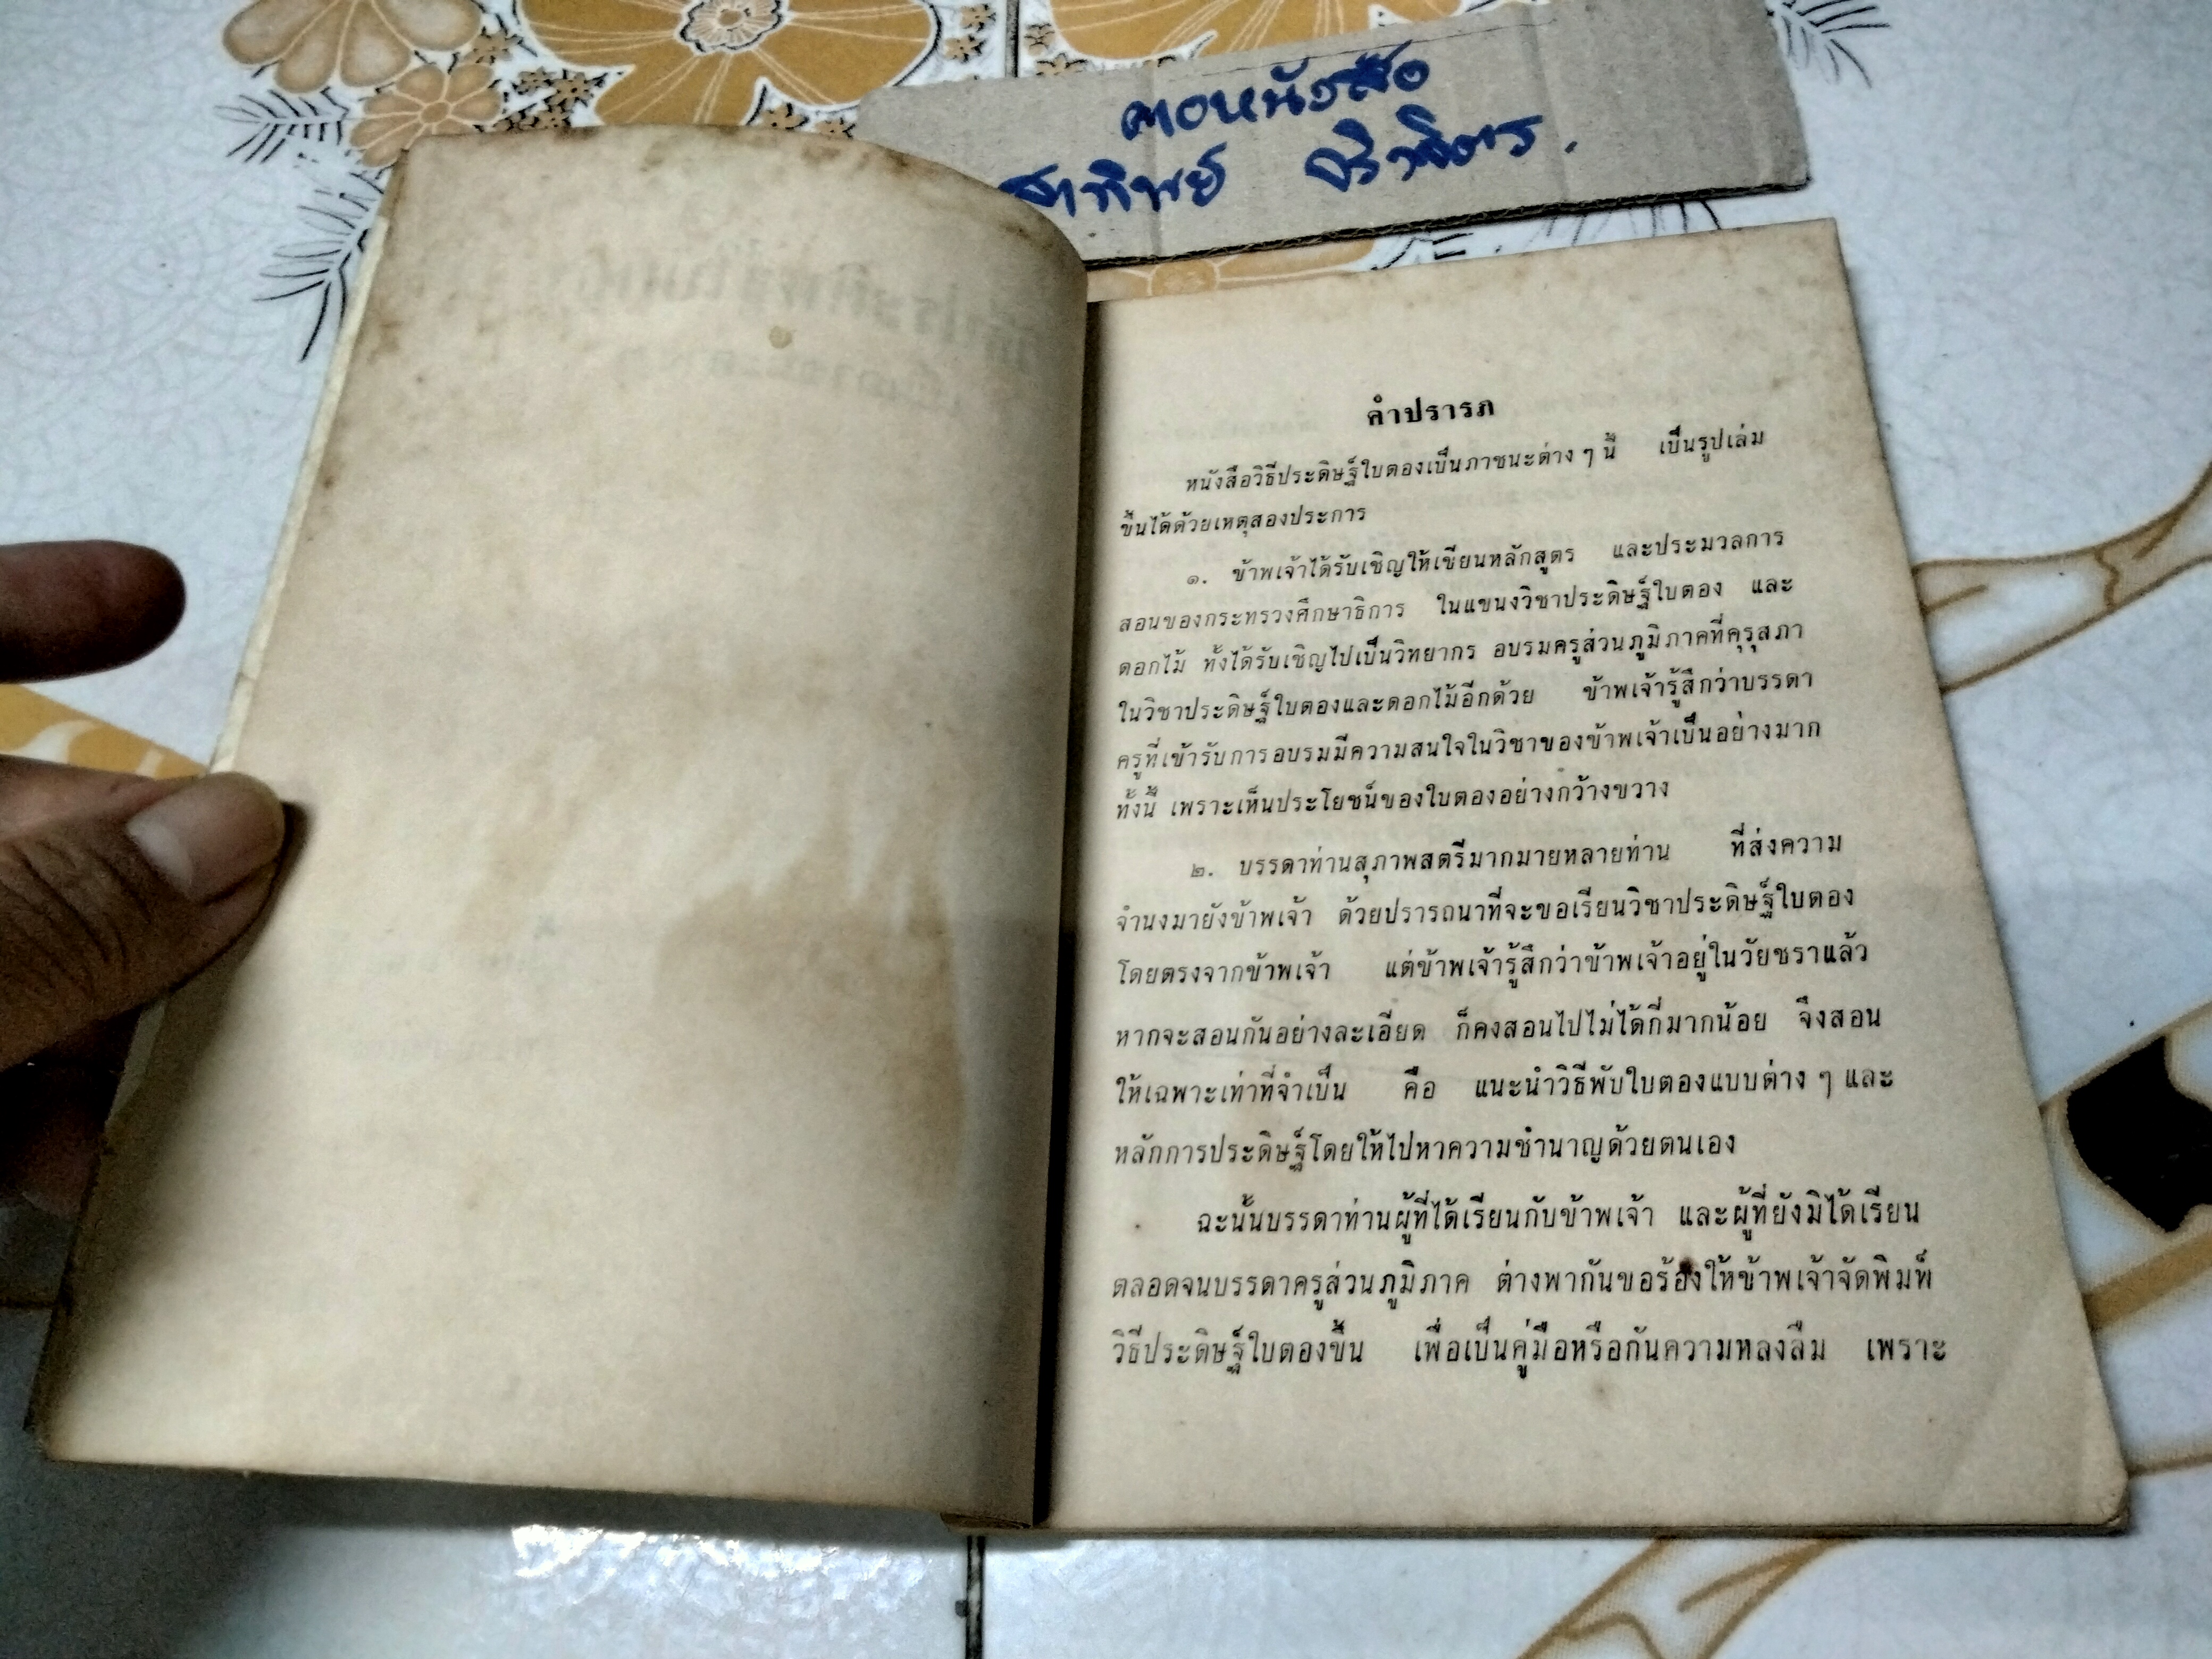 คอหนังสือ
คำปรารภ
หนังสือวิธีประดิษฐ์ใบตองเป็นภาชนะต่าง ๆ นี้ เป็นรูปเล่ม
ขึ้นได้ด้วยเหตุสองประการ
๑. ข้าพเจ้าได้รับเชิญให้เขียนหลักสูตร และประมวลการ
สอนของกระทรวงศึกษาธิการ ในแขนงวิชาประดิษฐ์ใบตอง และ
ดอกไม้ ทั้งได้รับเชิญไปเป็นวิทยากร อบรมครูส่วนภูมิภาคที่คุรุสภา
ในวิชาประดิษฐ์ใบตองและดอกไม้อีกด้วย ข้าพเจ้ารู้สึกว่าบรรดา
ครูที่เข้ารับการอบรมมีความสนใจในวิชาของข้าพเจ้าเป็นอย่างมาก
ทั้งนี้ เพราะเห็นประโยชน์ของใบตองอย่างกว้างขวาง
๒. บรรดาท่านสุภาพสตรีมากมายหลายท่าน ที่ส่งความ
จำนงมายังข้าพเจ้า ด้วยปรารถนาที่จะขอเรียนวิชาประดิษฐ์ใบตอง
โดยตรงจากข้าพเจ้า แต่ข้าพเจ้ารู้สึกว่าข้าพเจ้าอยู่ในวัยชราแล้ว
หากจะสอนกันอย่างละเอียด ก็คงสอนไปไม่ได้กี่มากน้อย จึงสอน
ให้เฉพาะเท่าที่จำเป็น คือ แนะนำวิธีพับใบตองแบบต่าง ๆ และ
หลักการประดิษฐ์โดยให้ไปหาความชำนาญด้วยตนเอง
ฉะนั้นบรรดาท่านผู้ที่ได้เรียนกับข้าพเจ้า และผู้ที่ยังมิได้เรียน
ตลอดจนบรรดาครูส่วนภูมิภาค ต่างพากันขอร้องให้ข้าพเจ้าจัดพิมพ์
วิธีประดิษฐ์ใบตองขึ้น เพื่อเป็นคู่มือหรือกันความหลงลืม เพราะ